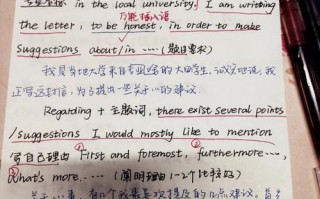 in the local university, I am writting
万能插入语
the letter, to be honest, in order to make
suggestions about/in …… (题目要求)
我是当地大学来自 的大四学生,说实话,我
正写这封信,为了提出一些关于…的建议
Regarding + 主题词, there exist several points
/suggestions I would mostly like to mention
写自己理由 ① First and foremost, ② furthermore…,
③ What's more…… (阐明理由1~2个比较好)